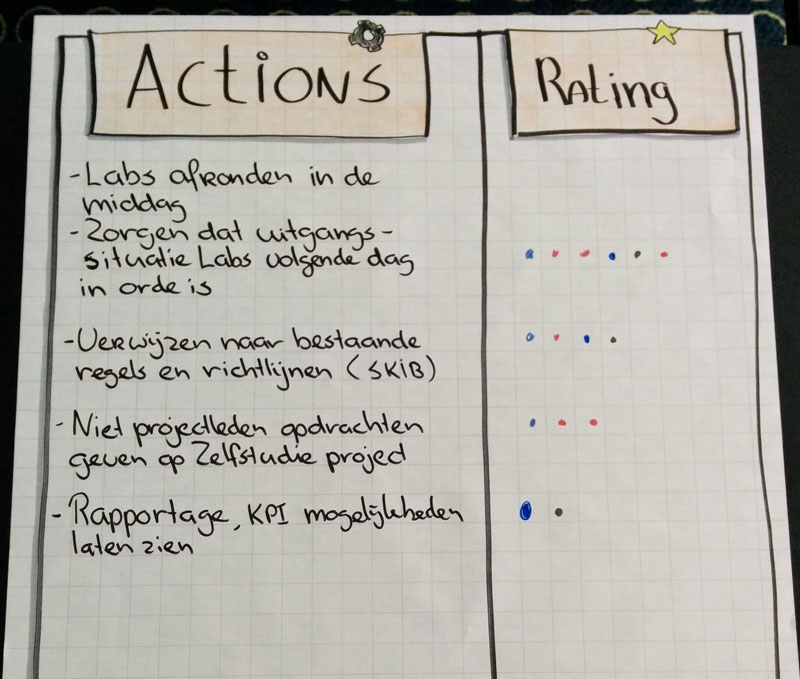 Actions
Rating
- Labs afronden in de
middag
- Zorgen dat uitgangs-
situatie Labs volgende dag
in orde is
- Verwijzen naar bestaande
regels en richtlijnen (SKIB)
- Niet projectleden opdrachten
geven op Zelfstudie project
- Rapportage, KPI mogelijkheden
laten zien